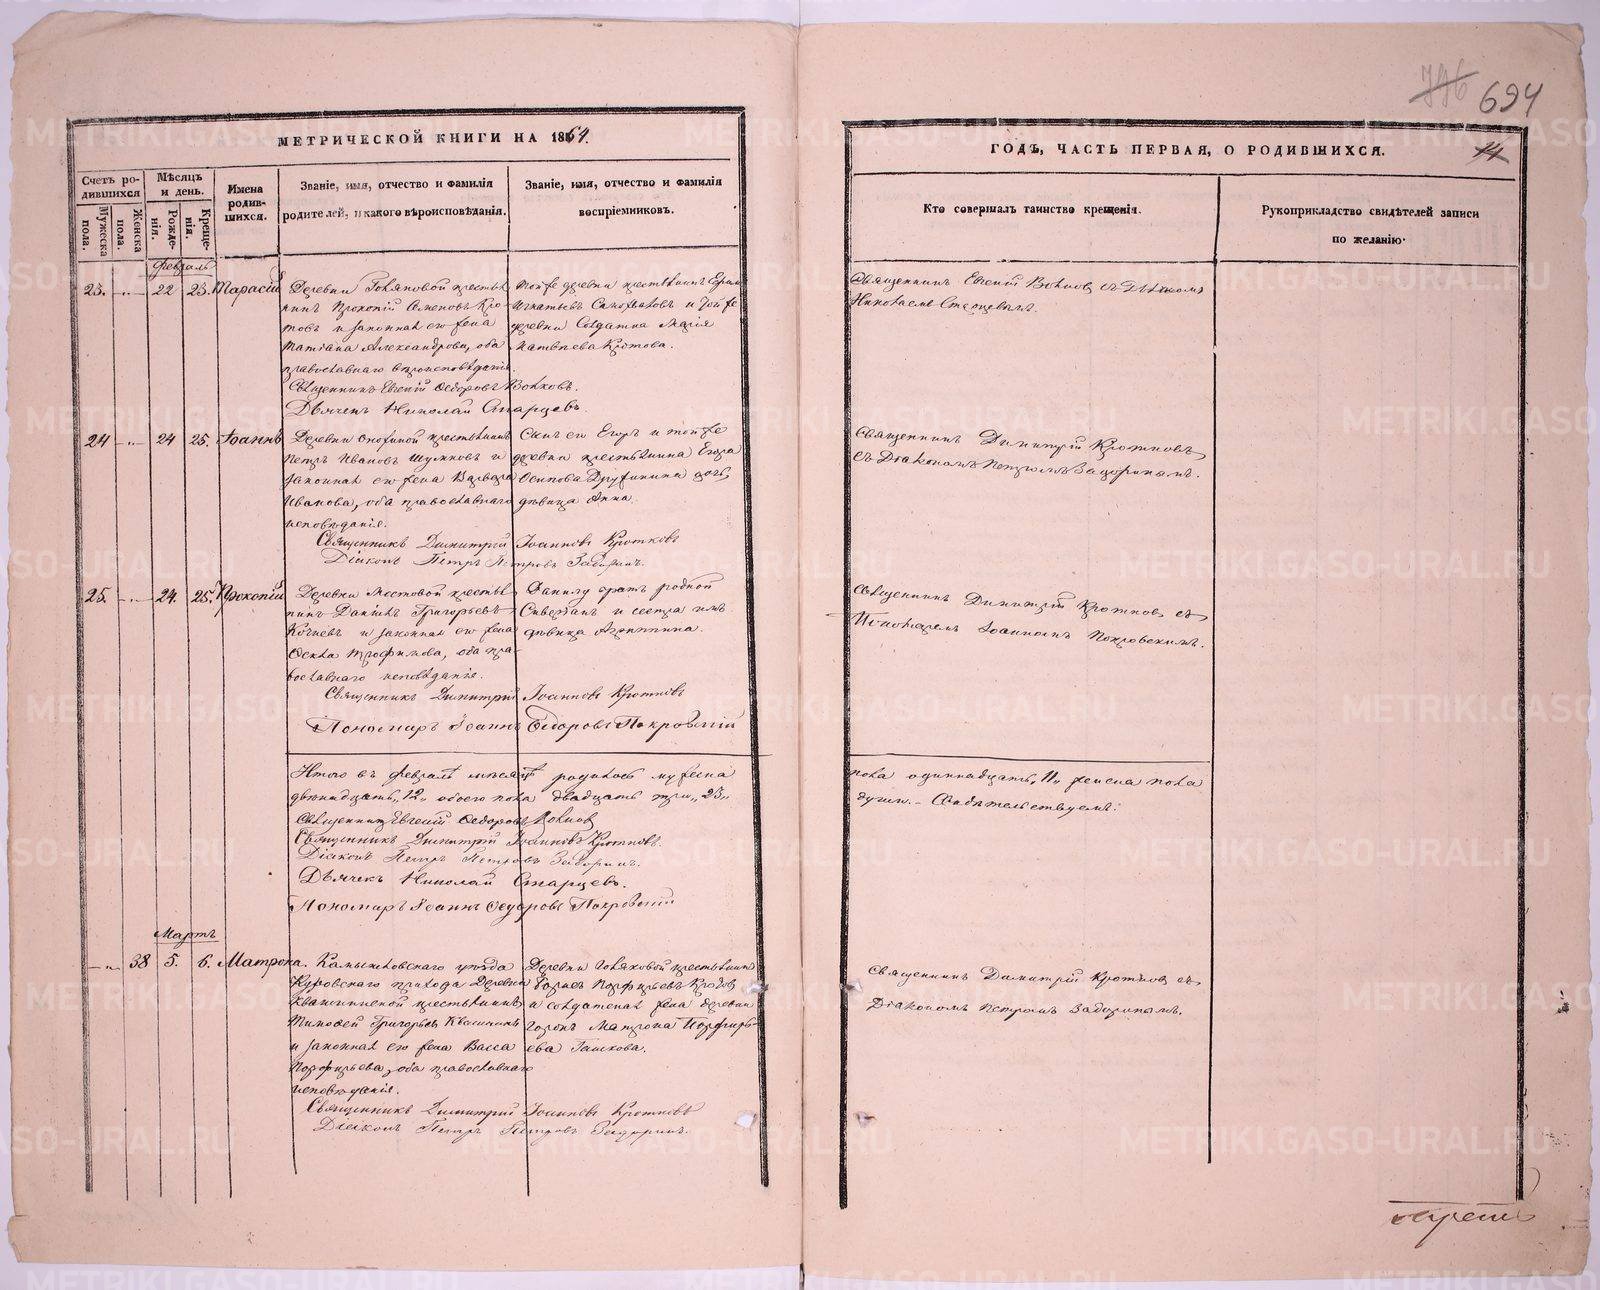 МЕТРИЧЕСКОЙ КНИГИ НА 1864.
Счетъ ро-
дившихся
Мѣсяцъ
и день.
Имена
родив-
шихся.
Званіе, имя, отчество и фамилія
родителей, и какого вѣроисповѣданія.
Званіе, имя, отчество и фамилія
воспріемниковъ.
Мужеска
пола.
Женска
пола.
Рожде-
нія.
Креще-
нія.
Февраль
23. „ 22 23. Тарасій
Деревни крестья-
нинъ Прокопій Семеновъ Кро-
товъ и законная его жена
Татіана Александрова, оба
православнаго вѣроисповѣданія.
Той же деревни крестьянинъ
Игнатьевъ и той же
деревни Солдатка Марія
Матвѣева Кротова.
Священникъ Евгеній Ѳедоровъ Волковъ.
Дьячекъ Николай Старцевъ.
24 „ 24 25. Іоаннъ
Деревни крестьянинъ
Петръ Ивановъ Шумковъ и
законная его жена Варвара
Иванова, оба православнаго
исповѣданія.
Сынъ его Егоръ и той же
деревни крестьянина Егора
Осипова Дружинина дочь
дѣвица Анна.
Священникъ Димитрій Іоанновъ Кротковъ
Діаконъ Петръ Петровъ Задоринъ.
25. „ 24. 25. Прокопій
Деревни Мостовой крестья-
нинъ Даніилъ Григорьевъ
Кочневъ и законная его жена
Ѳекла Трофимова, оба пра-
вославнаго исповѣданія.
Данилу братъ родной
и сестра имъ
дѣвица Агриппина.
Священникъ Димитрій Іоанновъ Кротковъ
Пономарь Іоаннъ Ѳедоровъ Покровскій
Итого въ Февралѣ мѣсяцѣ родилось мужеска
двѣнадцать „12„ обоего пола двадцать три „23„
Священникъ Евгеній Ѳедоровъ Волковъ
Священникъ Димитрій Іоанновъ Кротковъ.
Діаконъ Петръ Петровъ Задоринъ.
Дьячекъ Николай Старцевъ.
Пономарь Іоаннъ Ѳедоровъ Покровскій
Мартъ
„ 38 5. 6. Матрона.
Камышловскаго уѣзда
прихода Деревни
крестьянинъ
Тимофей Григорьевъ Квашнинъ
и законная его жена Васса
Порфирьева, оба православнаго
исповѣданія.
Деревни крестьянинъ
Порфирьевъ Кротовъ
и солдатская жена деревни
Матрона Порфирь-
ева
Священникъ Димитрій Іоанновъ Кротковъ
Діаконъ Петръ Петровъ Задоринъ.
796 694
14
ГОДЪ, ЧАСТЬ ПЕРВАЯ, О РОДИВШИХСЯ.
Кто совершалъ таинство крещенія.
Рукоприкладство свидѣтелей записи
по желанію.
Священникъ Евгеній Волковъ съ Дьячкомъ
Николаемъ Старцевымъ.
Священникъ Димитрій Кротковъ
съ Діакономъ Петромъ Задоринымъ.
Священникъ Димитрій Кротковъ съ
Пономаремъ Іоанномъ Покровскимъ.
пола одиннадцать „11„ женска пола
души. – Свидѣтельствуемъ:
Священникъ Димитрій Кротковъ съ
Діакономъ Петромъ Задоринымъ.